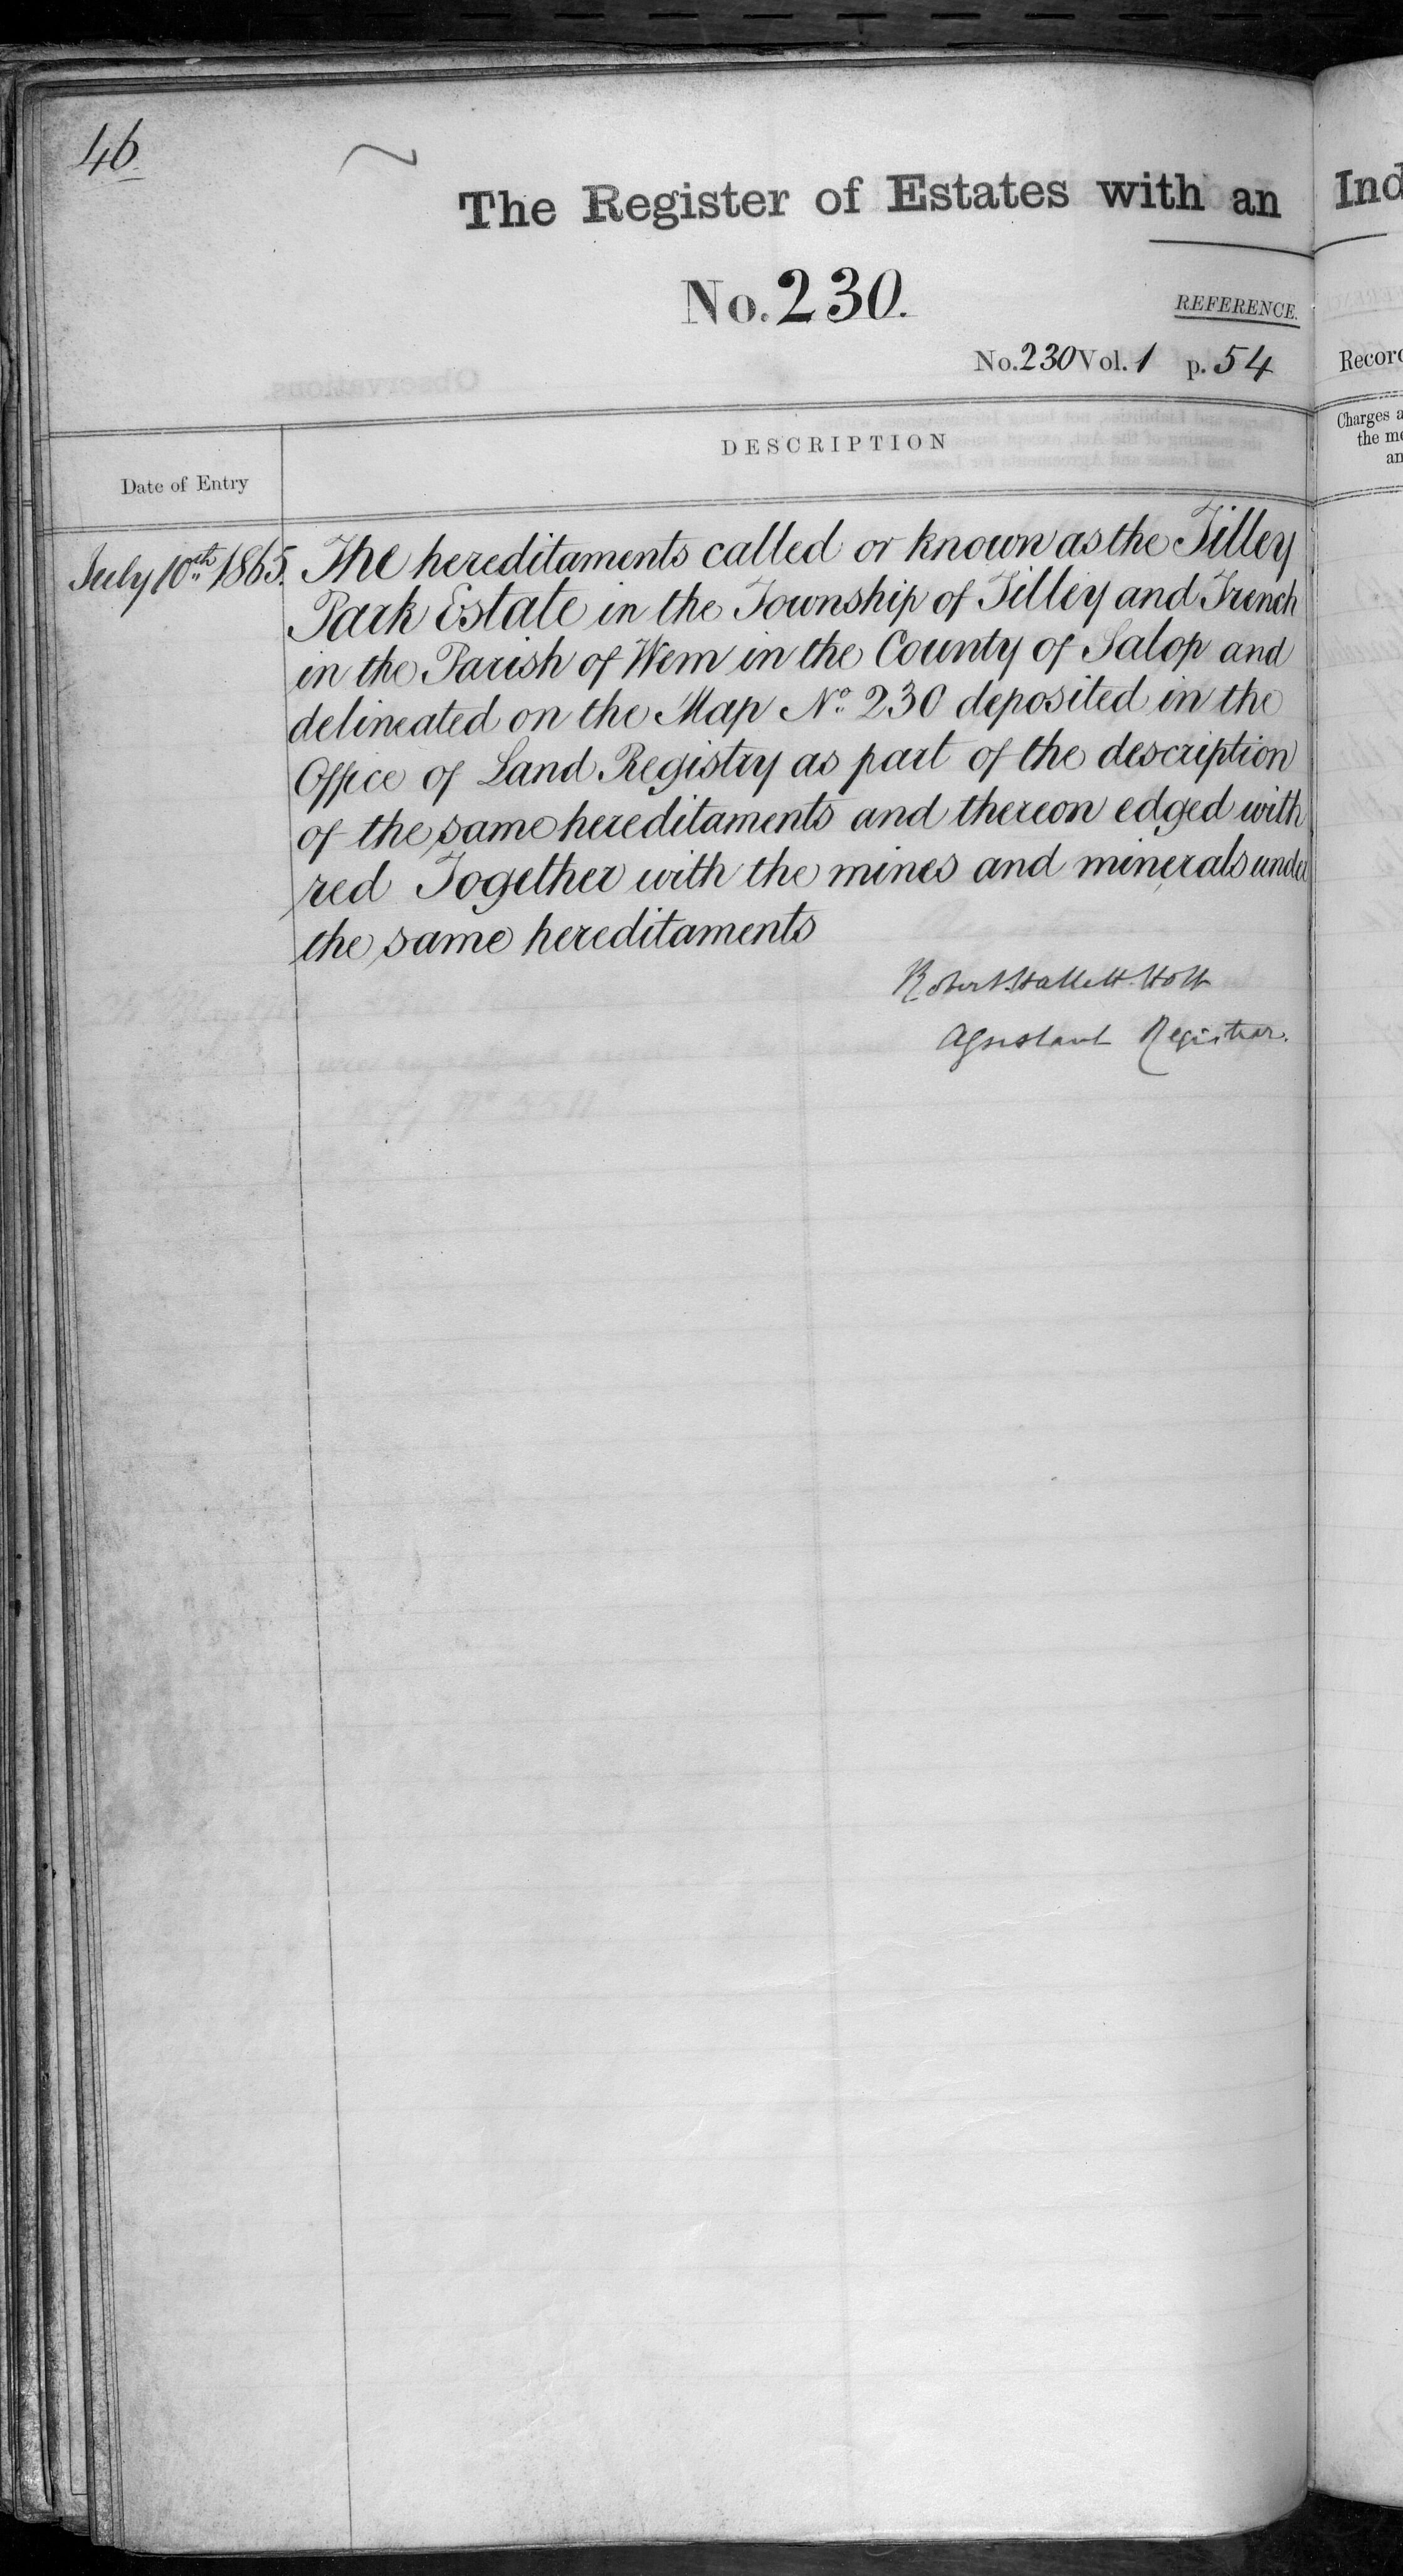 46
The Register of Estates with an Ind
No. 230.
REFERENCE.
No. 230 Vol. 1 p. 54
Record
DESCRIPTION
Charges a
the mo
an
Date of Entry
July 10th 1865.
The hereditaments called or known as the Tilley
Park Estate in the Township of Tilley and Trench
in the Parish of Wem in the County of Salop and
delineated on the Map No. 230 deposited in the
Office of Land Registry as part of the description
of the same hereditaments and thereon edged with
red Together with the mines and minerals under
the same hereditaments
Robert Hallett Holt
Assistant Registrar.